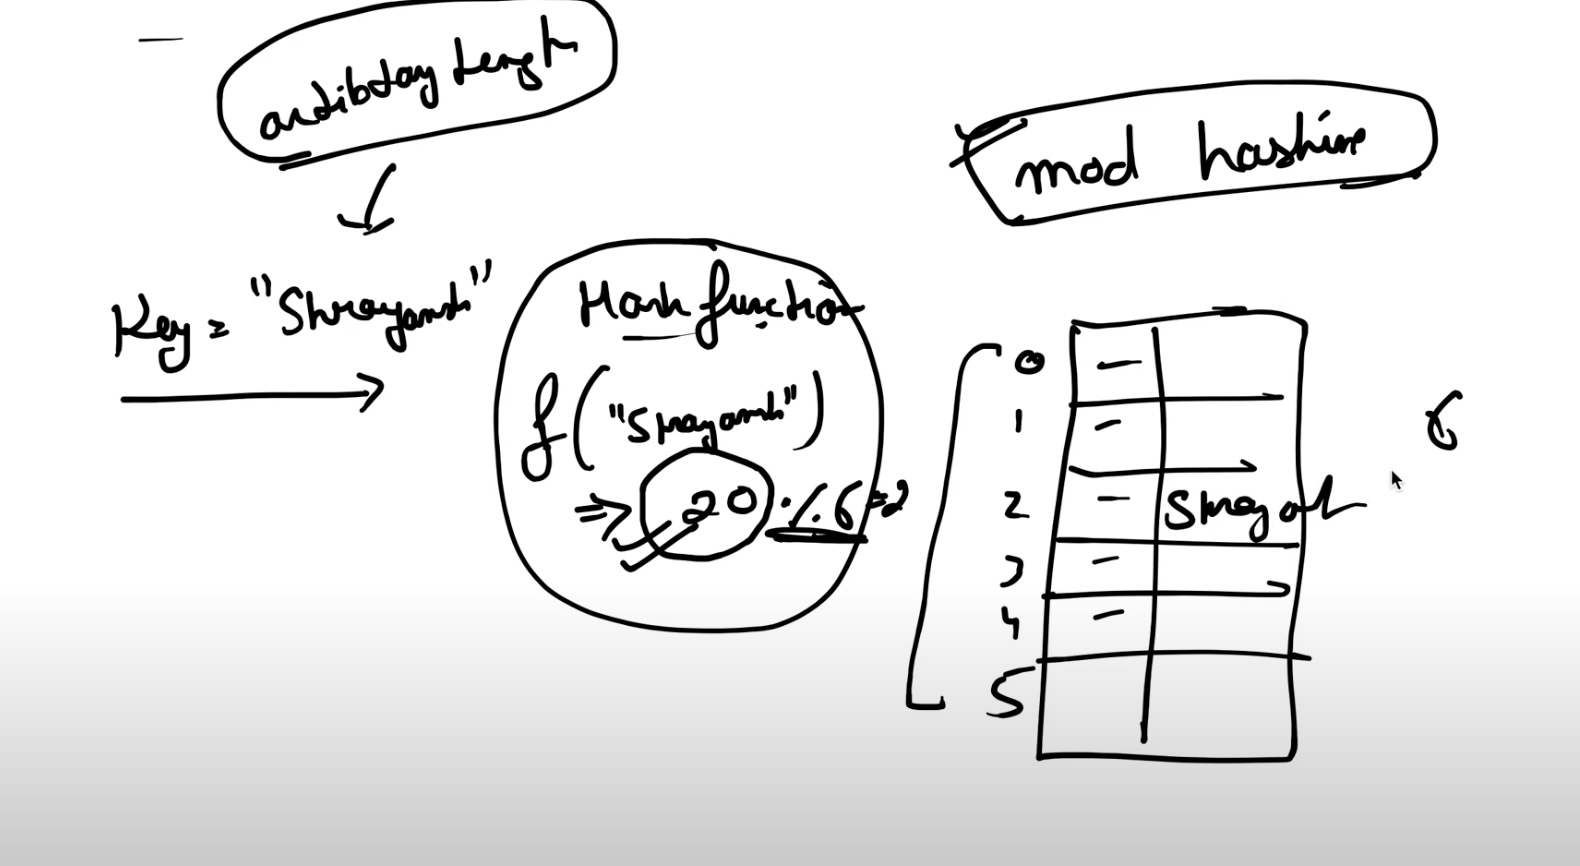 arbitrary length
mod hashing
Key = "Shrayansh"
Hash function
f("Shrayansh")
=> 20 % 6 = 2
0
1
2 Shrayansh
3
4
5
6